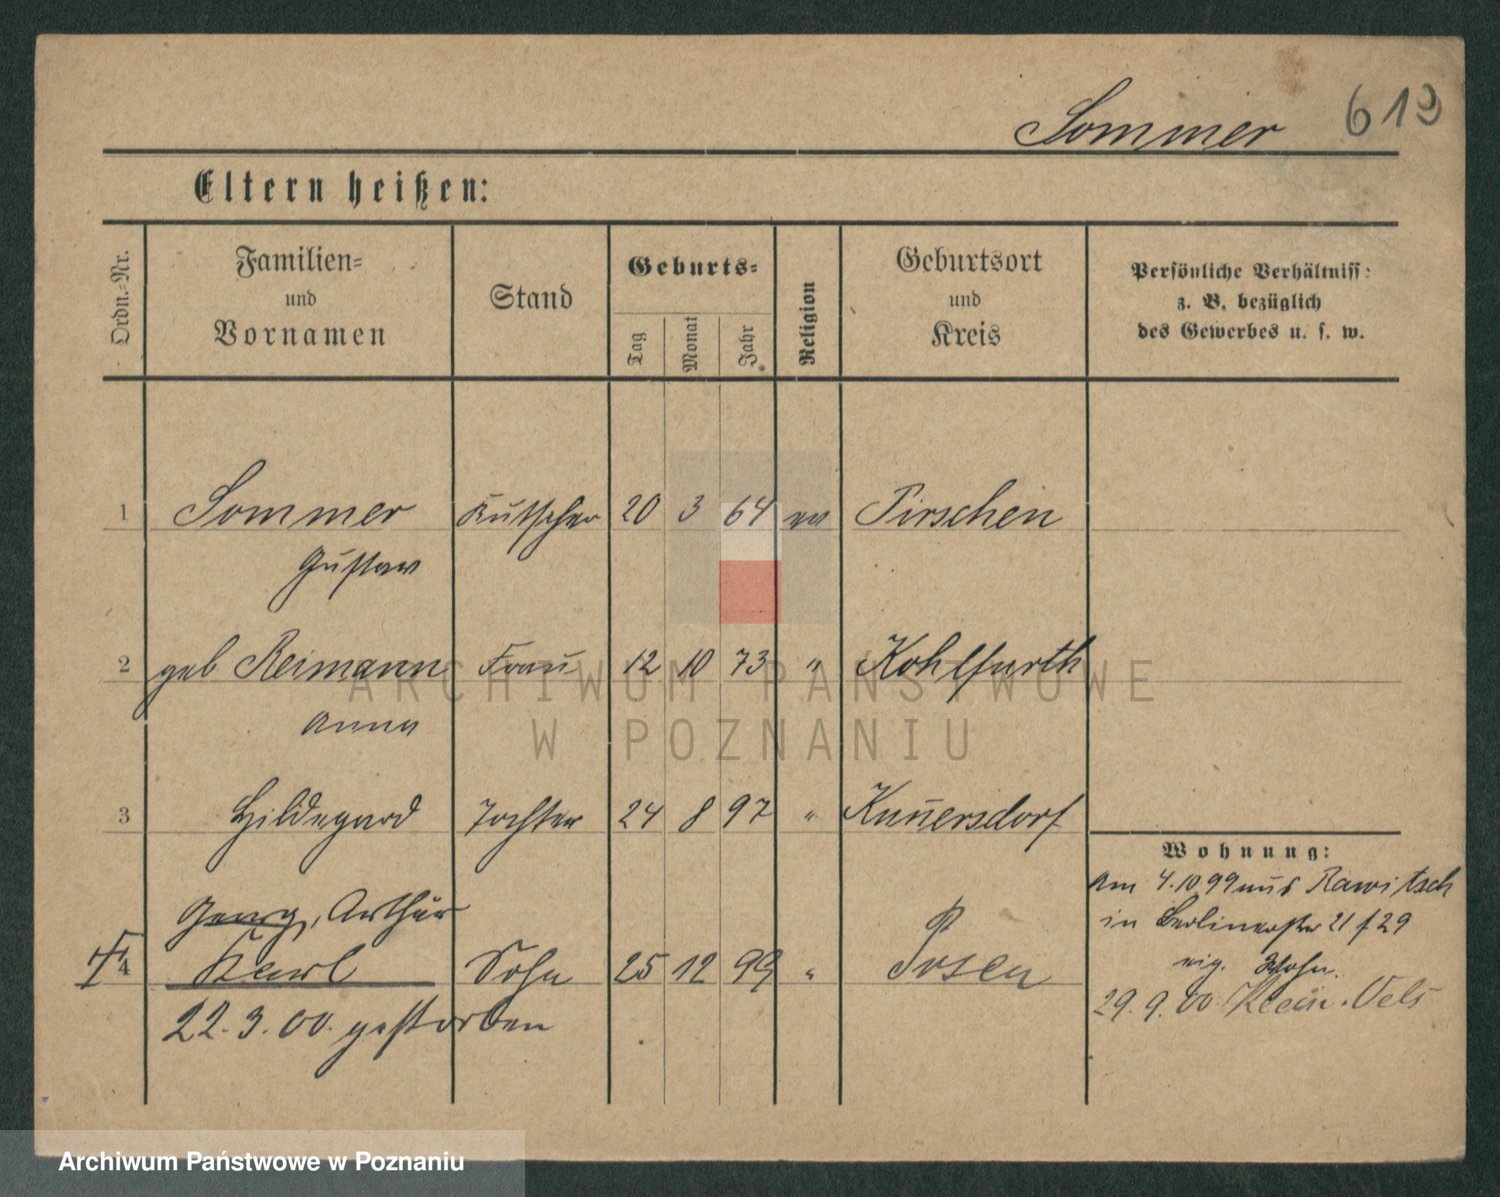 Sommer 619
Eltern heißen:
Ordn.-Nr.
Familien-
und
Vornamen
Stand
Geburts-
Tag
Monat
Jahr
Religion
Geburtsort
und
Kreis
Persönliche Verhältniss:
z. B. bezüglich
des Gewerbes u. s. w.
1 Sommer Kutscher 20 3 64 ev Pirschen
Gustav
2 geb Reimann Frau 12 10 73 " Kohlfurth
Anna
3 Hildegard Tochter 24 8 97 " Kunersdorf
Georg, Arthur
4 Karl Sohn 25 12 99 " Posen
22.3.00. gestorben
Wohnung:
Am 4.10 99 aus Rawitsch
in Berlinerstr 21 f 29
eig. Wohn.
29.9.00. Klein-Oels
ARCHIWUM PAŃSTWOWE
W POZNANIU
Archiwum Państwowe w Poznaniu